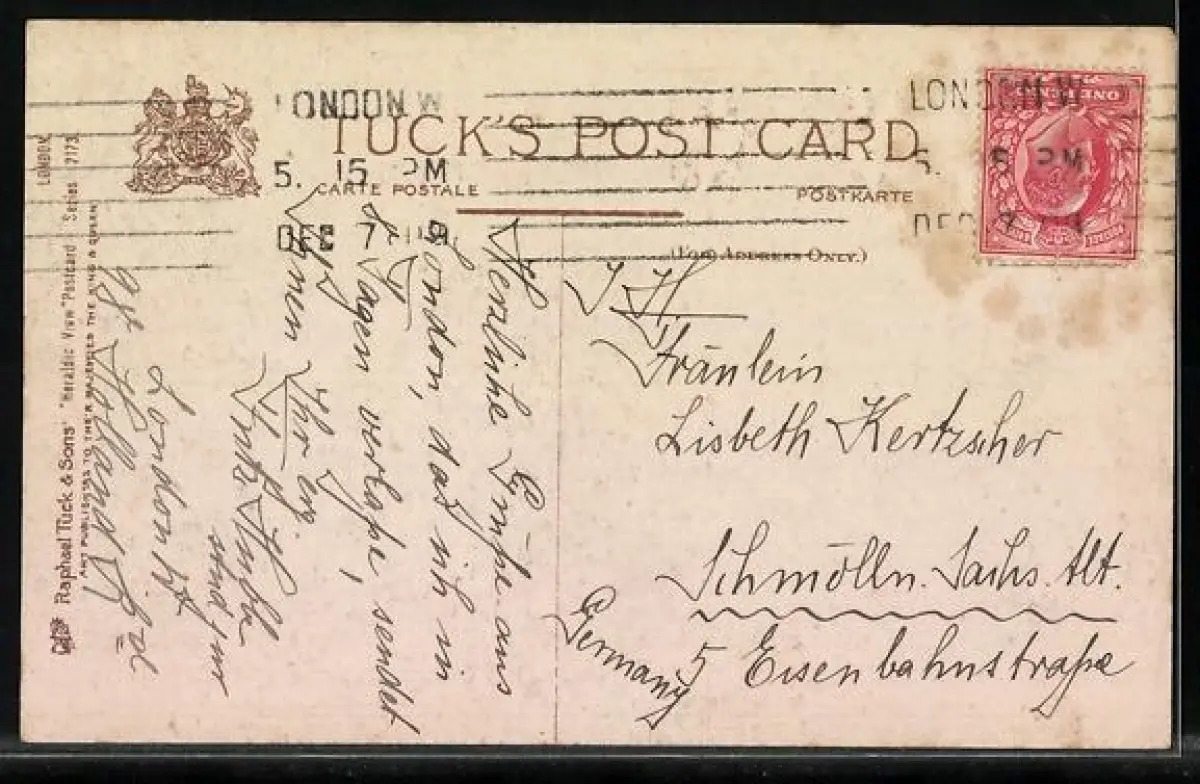 TUCK'S POST CARD
CARTE POSTALE
POSTKARTE
(FOR ADDRESS ONLY.)
LONDON W
5. 15 PM
DEC 7
LONDON W
5. 15 PM
DEC 7
ONE
Raphael Tuck & Sons' "Heraldic View" Postcard Series 2173
LONDON
ART PUBLISHERS TO THEIR MAJESTIES THE KING & QUEEN
Herzliche Grüße aus
London, daß ich in
Tagen verlaße, sendet
Ihnen Ihr erg.
Fritz
London W
98 Holland Rd
I. H.
Fräulein
Lisbeth Kertzscher
Schmölln. Sachs. Alt.
5 Eisenbahnstraße
Germany